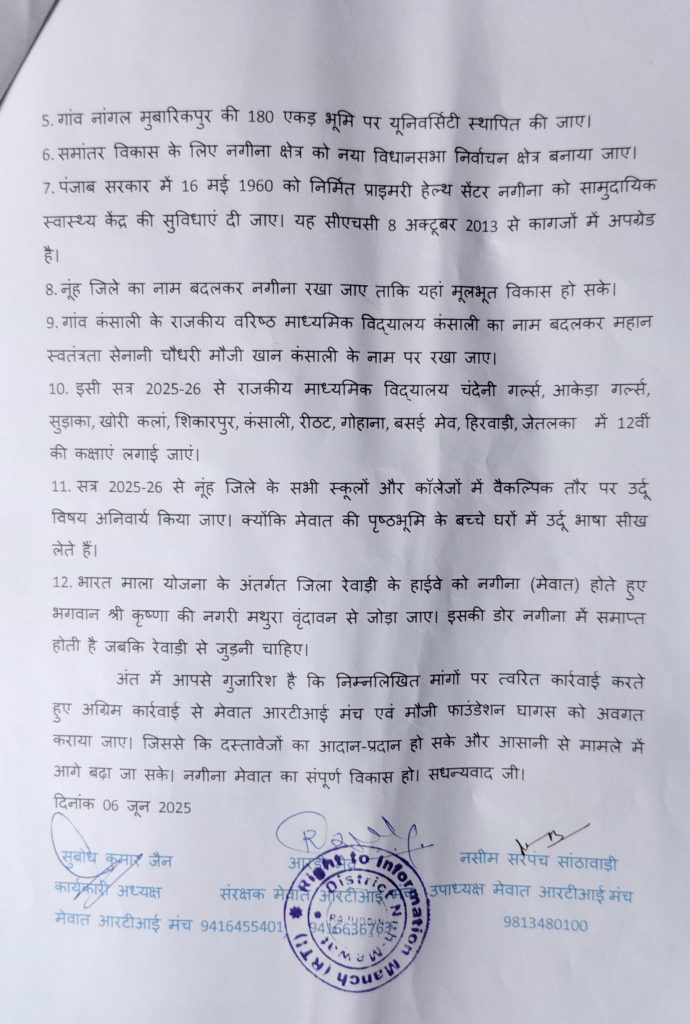 5. गांव नांगल मुबारिकपुर की 180 एकड़ भूमि पर यूनिवर्सिटी स्थापित की जाए।
6. समांतर विकास के लिए नगीना क्षेत्र को नया विधानसभा निर्वाचन क्षेत्र बनाया जाए।
7. पंजाब सरकार में 16 मई 1960 को निर्मित प्राइमरी हेल्थ सेंटर नगीना को सामुदायिक
स्वास्थ्य केंद्र की सुविधाएं दी जाए। यह सीएचसी 8 अक्टूबर 2013 से कागजों में अपग्रेड
है।
8. नूंह जिले का नाम बदलकर नगीना रखा जाए ताकि यहां मूलभूत विकास हो सके।
9. गांव कंसाली के राजकीय वरिष्ठ माध्यमिक विद्यालय कंसाली का नाम बदलकर महान
स्वतंत्रता सेनानी चौधरी मौजी खान कंसाली के नाम पर रखा जाए।
10. इसी सत्र 2025-26 से राजकीय माध्यमिक विद्यालय चंदेनी गर्ल्स, आकेड़ा गर्ल्स,
सुडाका, खोरी कलां, शिकारपुर, कंसाली, रीठट, गोहाना, बसई मेव, हिरवाड़ी, जेतलका में 12वीं
की कक्षाएं लगाई जाएं।
11. सत्र 2025-26 से नूंह जिले के सभी स्कूलों और कॉलेजों में वैकल्पिक तौर पर उर्दू
विषय अनिवार्य किया जाए। क्योंकि मेवात की पृष्ठभूमि के बच्चे घरों में उर्दू भाषा सीख
लेते हैं।
12. भारत माला योजना के अंतर्गत जिला रेवाड़ी के हाईवे को नगीना (मेवात) होते हुए
भगवान श्री कृष्णा की नगरी मथुरा वृंदावन से जोड़ा जाए। इसकी डोर नगीना में समाप्त
होती है जबकि रेवाड़ी से जुड़नी चाहिए।
अंत में आपसे गुजारिश है कि निम्नलिखित मांगों पर त्वरित कार्रवाई करते
हुए अग्रिम कार्रवाई से मेवात आरटीआई मंच एवं मौजी फाउंडेशन घागस को अवगत
कराया जाए। जिससे कि दस्तावेजों का आदान-प्रदान हो सके और आसानी से मामले में
आगे बढ़ा जा सके। नगीना मेवात का संपूर्ण विकास हो। सधन्यवाद जी।
दिनांक 06 जून 2025
सुबोध कुमार जैन नसीम सरपंच सांठावाड़ी
कार्यकारी अध्यक्ष संरक्षक मेवात आरटीआई मंच उपाध्यक्ष मेवात आरटीआई मंच
मेवात आरटीआई मंच 9416455401, 9416636763 9813480100
Right to Information Manch (RTI)
District Nuh-Mewat